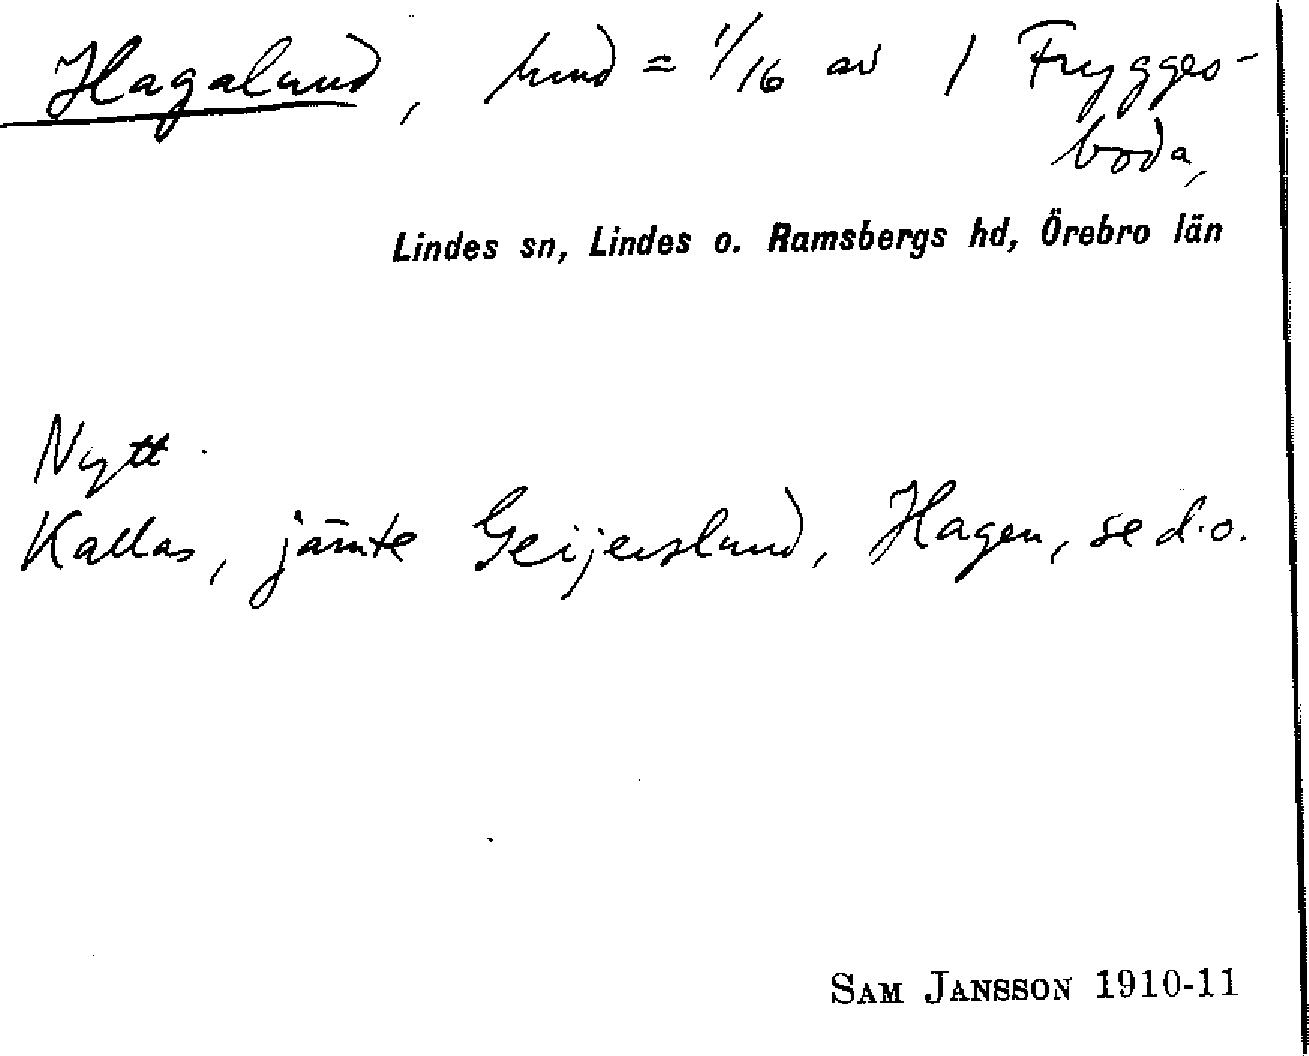 Hagalund, hmd = 1/16 av 1 Frygges-
boda,
Lindes sn, Lindes o. Ramsbergs hd, Örebro län
Nytt.
Kallas, jämte Geijerslund, Hagen, se d.o.
SAM JANSSON 1910-11